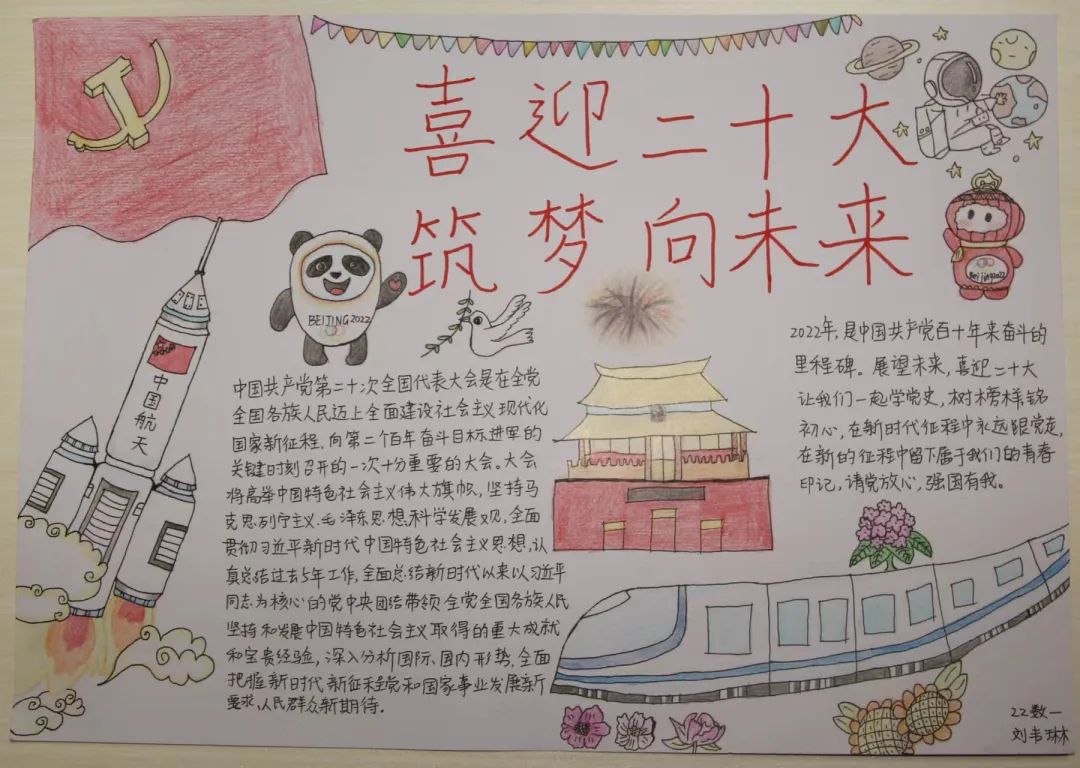 喜迎二十大
筑梦向未来
中国航天
BEIJING2022
Beijing2022
中国共产党第二十次全国代表大会是在全党
全国各族人民迈上全面建设社会主义现代化
国家新征程,向第二个百年奋斗目标进军的
关键时刻召开的一次十分重要的大会。大会
将高举中国特色社会主义伟大旗帜,坚持马
克思列宁主义、毛泽东思想,科学发展观,全面
贯彻习近平新时代中国特色社会主义思想,认
真总结过去5年工作,全面总结新时代以来以习近平
同志为核心的党中央团结带领全党全国各族人民
坚持和发展中国特色社会主义取得的重大成就
和宝贵经验,深入分析国际、国内形势,全面
把握新时代新征程党和国家事业发展新
要求,人民群众新期待.
2022年,是中国共产党百十年来奋斗的
里程碑。展望未来,喜迎二十大
让我们一起学党史,树榜样,铭
初心,在新时代征程中永远跟党走,
在新的征程中留下属于我们的青春
印记,请党放心,强国有我。
22数一
刘韦琳